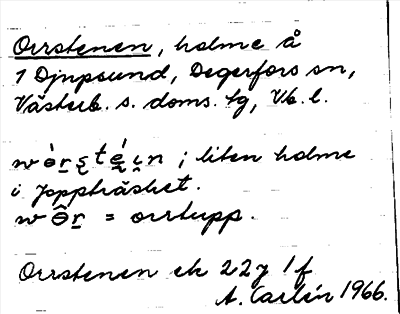 Orrstenen, holme å
1 Djupsund, Degerfors sn,
Västerb. s. doms. tg, Vb. l.
liten holme
i Joppträsket.
= orrtupp.
Orrstenen ek 22 J 1 f
A. Carlén 1966.